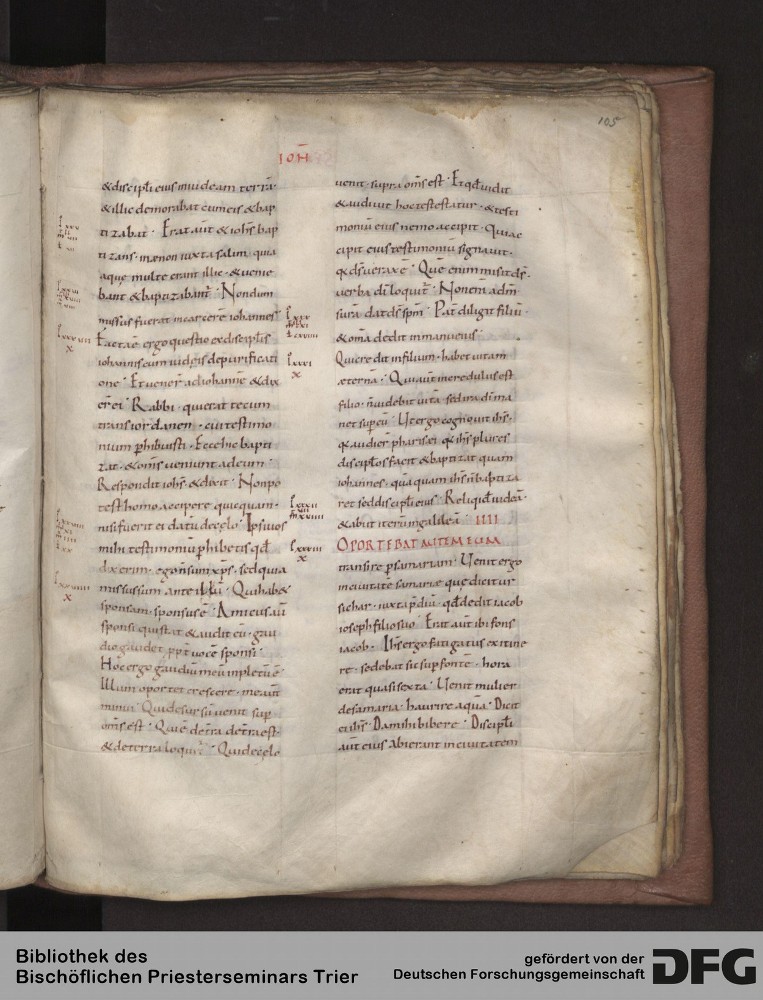 105
IOH̅
& discipl̅i eius in iudeam terra̅·
& illic demorabat̅ cum eis & bap
tizabat· Erat aut̅ & ioh̅s bap
tizans· in ænon iuxta salim· quia
aque multe erant illic· & uenie
bant & baptizabant̅· Nondum
missus fuerat in carcere̅ iohannes·
Facta e̅ ergo questio ex discipl̅is
iohannis cum iudęis de purificati
one· Et uener̅ ad iohanne̅ & dix
er̅ ei· Rabbi· qui erat tecum
trans iordanen· cui testimo
nium p̲hibuisti· Ecce hic bapti
zat· & om̅s ueniunt ad eum·
Respondit ioh̅s· & dixit· Non po
test homo accipere quicquam·
nisi fuerit ei datu̅ de cęlo· Ipsi uos
mihi testimoniu̅ p̲hibetis qd̅
dixerim· ego n̅ sum xp̅s· sed quia
missus sum ante illu̅· Qui hab&
sponsam· sponsus e̅· Amicus aut̅
sponsi qui stat & audit eu̅· gau
dio gaud& ppt̅ uoce̅ sponsi·
Hoc ergo gaudiu̅ meu̅ inpletu̅ e̅
Illum oportet crescere· me aut̅
minui· Qui desursu̅ uenit sup̲
om̅s est· Qui e̅ de t̅ra de t̅ra est·
& de terra loquit̅· Qui de cęlo
uenit· supra om̅s est· Et qd̅ uidit
& audiuit hoc testatur· & testi
moniu̅ eius nemo accipit· Qui ac
cipit eius testimoniu̅ signauit·
q& d̅s uerax e̅· Que̅ enim misit d̅s·
uerba di̅ loquit̅· Non eni̅ ad m̅
sura̅ dat d̅s sp̅m· Pat̅ diligit filiu̅·
& om̅a dedit in manu eius·
Qui credit in filium· habet uitam
æterna̅· Qui aut̅ incredulus est
filio· n̅ uidebit uita̅· sed ira di̅ ma
net sup̲ eu̅· Ut ergo cognouit ih̅s·
q& audier̅ pharisei q& ih̅s plures
discipl̅os facit & baptizat quam
iohannes· quaquam ih̅s n̅ baptiza
ret sed discipl̅i eius· Reliqd̅ iudea̅·
& abiit iteru̅ in galilea̅· IIII
OPORTEBAT AUTEM EUM
transire p̲ samariam· Uenit ergo
in ciuitate̅ samariæ quę dicitur
sichar· iuxta p̲diu̅· qd̅ dedit iacob
ioseph filio suo· Erat aut̅ ibi fons
iacob· Ih̅s ergo fatigatus ex itine
re· sedebat sic sup̲ fonte̅· hora
erat quasi sexta· Uenit mulier
de samaria· haurire aqua̅· Dicit
ei ih̅s· Da mihi bibere· Discipl̅i
aut̅ eius abierant in ciuitatem
Bibliothek des
Bischöflichen Priesterseminars Trier
gefördert von der
Deutschen Forschungsgemeinschaft
DFG